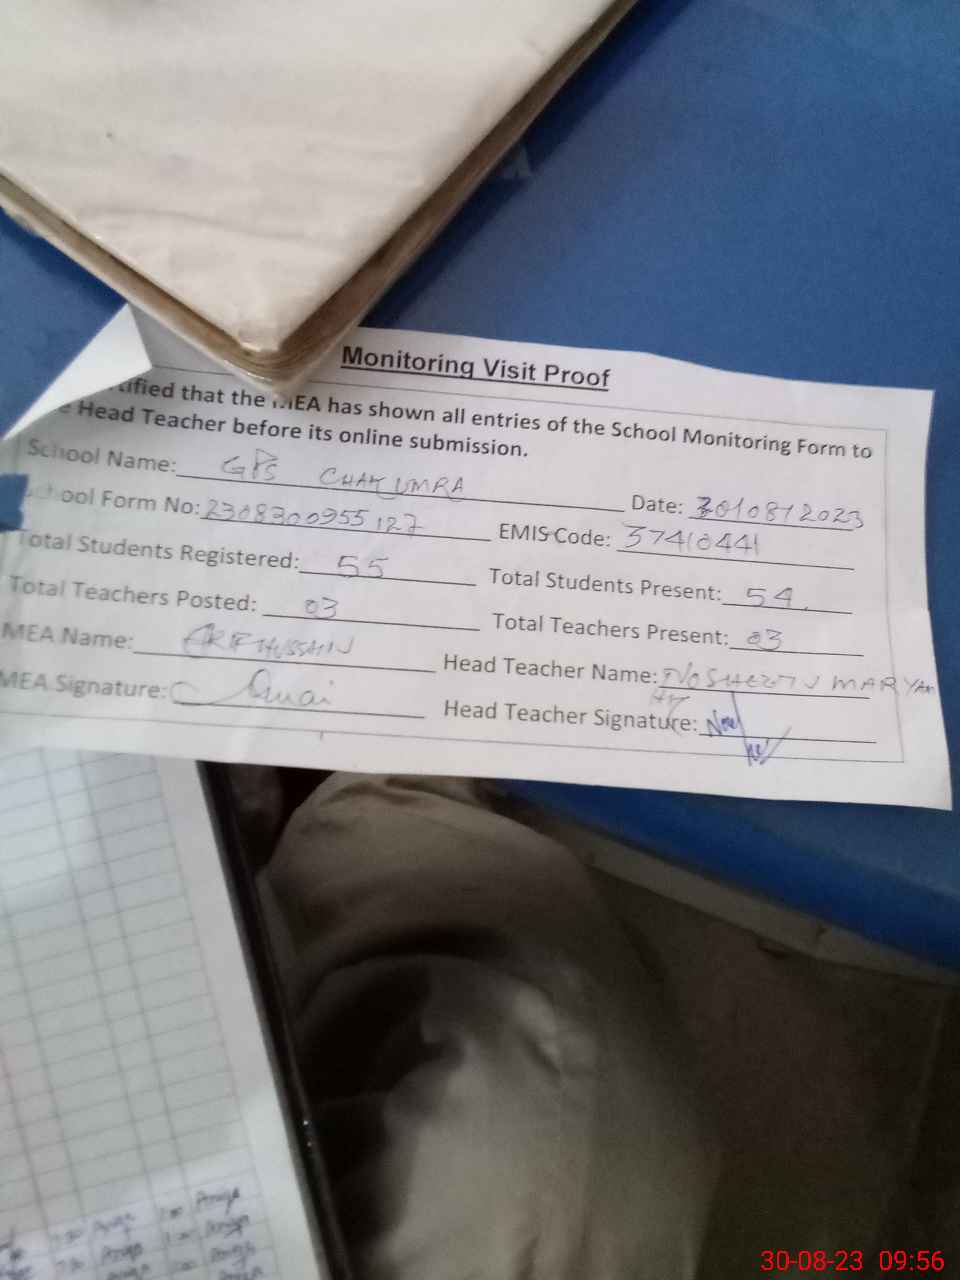 Monitoring Visit Proof
tified that the MEA has shown all entries of the School Monitoring Form to
e Head Teacher before its online submission.
School Name: GPS CHAK UMRA Date: 30/08/2023
School Form No: 2308300955127 EMIS Code: 37410441
Total Students Registered: 55 Total Students Present: 54
Total Teachers Posted: 03 Total Teachers Present: 03
MEA Name: ARIF HUSSAIN Head Teacher Name: NOSHEEN MARYAM
MEA Signature: Head Teacher Signature:
30-08-23 09:56